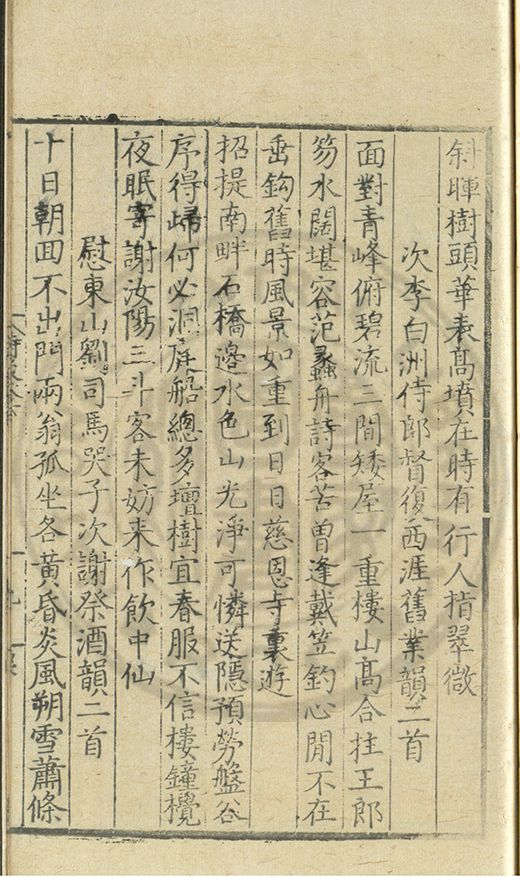 斜暉樹頭華表髙墳在時有行人指翠微
次李白洲侍郎督復西涯舊業韻二首
面對青峰俯碧流三間矮屋一重樓山髙合拄王郎
笏水闊堪容范蠡舟詩客苦曽逢戴笠釣心閒不在
垂鈎舊時風景如重到日日慈恩寺裏遊
招提南畔石橋邊水色山光淨可憐送隱預勞盤谷
序得歸何必洞庭船總多壇樹宜春服不信樓鐘攪
夜眠寄謝汝陽三斗客未妨来作飲中仙
慰東山劉司馬哭子次謝祭酒韻二首
十日朝囬不出門兩翁孤坐各黃昏炎風朔雪蕭條